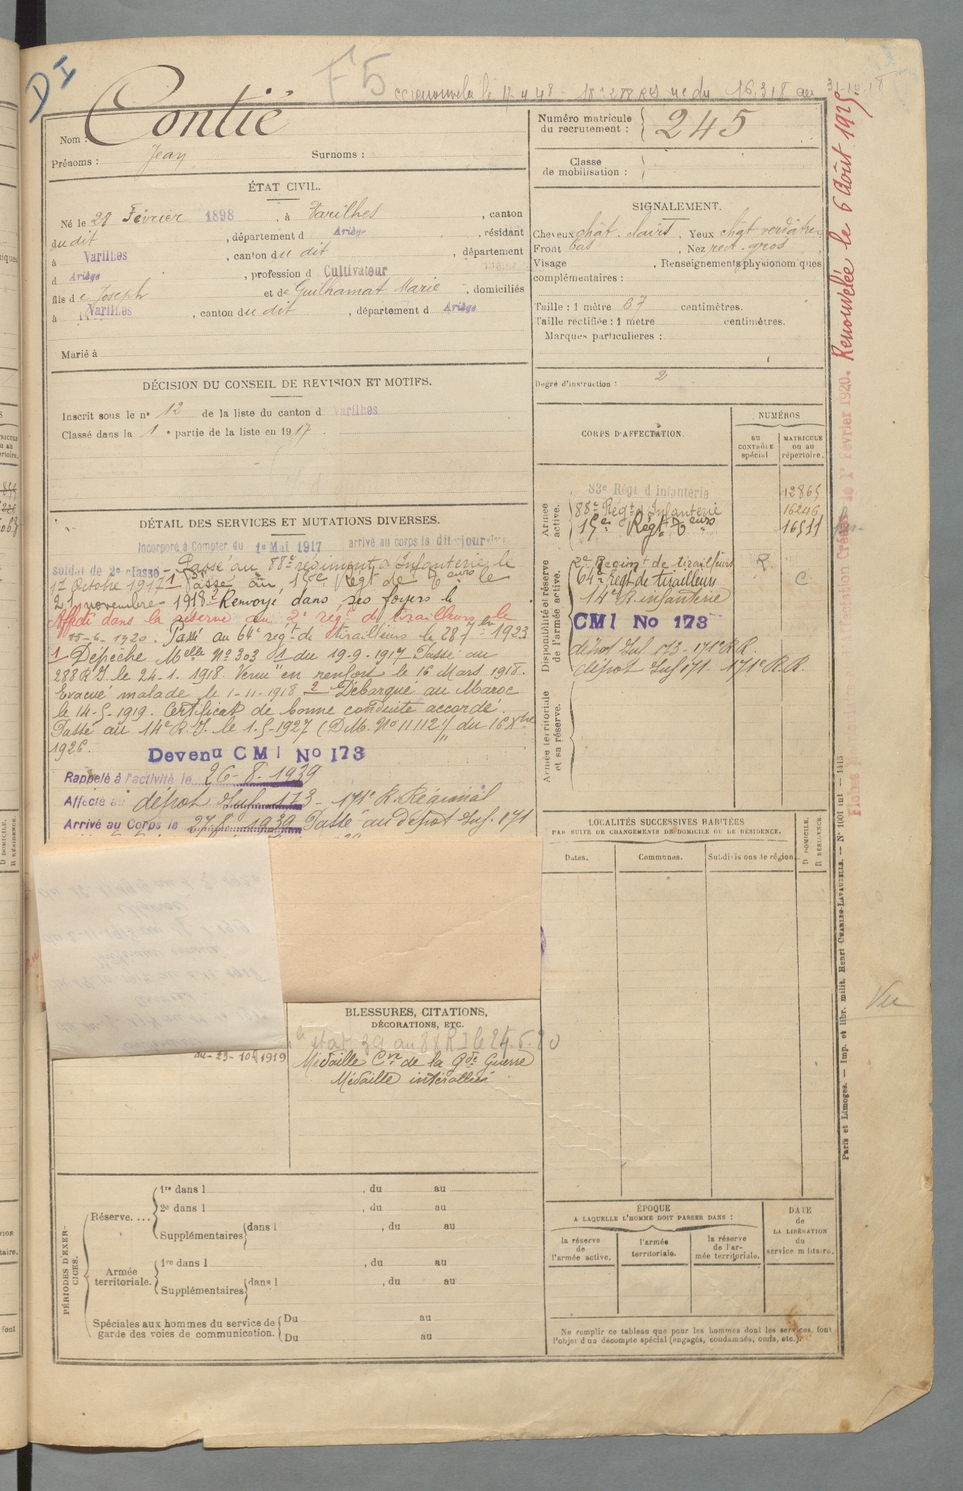 DI
F5
Nom : Contié
Prénoms : Jean Surnoms :
Numéro matricule du recrutement : 245
Classe de mobilisation :
ÉTAT CIVIL.
Né le 28 Février 1898, à Varilhes, canton
du dit, département d Ariège, résidant
à Varilhes, canton du dit, département
d Ariège, profession d Cultivateur
fils de Joseph et de Guilhamat Marie, domiciliés
à Varilhes, canton du dit, département d Ariège
Marié à
SIGNALEMENT.
Cheveux chât. clairs, Yeux chgt verdâtre
Front bas, Nez rect. gros
Visage, Renseignements physionomiques
complémentaires :
Taille : 1 mètre 67 centimètres.
Taille rectifiée : 1 mètre centimètres.
Marques particulières :
Degré d'instruction : 2
DÉCISION DU CONSEIL DE REVISION ET MOTIFS.
Inscrit sous le n° 12 de la liste du canton d Varilhes
Classé dans la 1e partie de la liste en 1917.
DÉTAIL DES SERVICES ET MUTATIONS DIVERSES.
Incorporé à Compter du 1er Mai 1917 arrivé au corps le dit jour
soldat de 2e classe - Passé au 88e régiment d'Infanterie le
17 Octobre 1917 1 Passé au 15e Régt de Teurs le
21 novembre 1918 2 Renvoyé dans ses foyers le
Affecté dans la réserve au 2e régt de tirailleurs le
15-6-1920. Passé au 64e régt de tirailleurs le 28 7bre 1923
1 Dépêche Melle N° 303 du 19-9-1917 Passé au
288 R.I. le 24-1-1918. Venu en renfort le 16 Mars 1918.
Evacué malade le 1-11-1918 2 Débarqué au Maroc
le 14-5-1919. Certificat de bonne conduite accordé.
Passé au 14e R.I. le 1-5-1927 (D.M. N° 11112 du 16 Xbre
1926.
Devenu CMI No 173
Rappelé à l'activité le 26-8-1939
Affecté au dépôt Inf. 173 - 171e R. Régional
Arrivé au Corps le 27-8-1939 Passé au dépôt Inf. 171
CORPS D'AFFECTATION.
NUMÉROS
au contrôle spécial
matricule ou au répertoire.
Armée active.
83e Régt d'Infanterie 12865
88e Régt d'Infanterie 16246
15e Régt Teurs 16511
Disponibilité et réserve de l'armée active.
2e Regimt de tirailleurs R.
64e régt de tirailleurs C.
14e R. infanterie
CMI No 173
dépôt Inf 173 - 171e R.R.
dépôt Inf 171 - 171e R.R.
Armée territoriale et sa réserve.
LOCALITÉS SUCCESSIVES HABITÉES
PAR SUITE DE CHANGEMENTS DE DOMICILE OU DE RÉSIDENCE.
Dates. Communes. Subdivisions de région.
D DOMICILE.
R RÉSIDENCE.
au 23-10-1919
BLESSURES, CITATIONS,
DÉCORATIONS, ETC.
Médaille Cve de la Gde Guerre
Médaille interalliée
PÉRIODES D'EXERCICES.
Réserve....
1re dans l , du au
2e dans l , du au
Supplémentaires dans l , du au
Armée territoriale.
1re dans l , du au
Supplémentaires dans l , du au
Spéciales aux hommes du service de garde des voies de communication.
Du au
Du au
ÉPOQUE
A LAQUELLE L'HOMME DOIT PASSER DANS :
la réserve de l'armée active.
l'armée territoriale.
la réserve de l'armée territoriale.
DATE de LA LIBÉRATION du service militaire.
Ne remplir ce tableau que pour les hommes dont les services font
l'objet d'un décompte spécial (engagés, condamnés, omis, etc.).
Renouvelée le 6 Août 1925.
Vu
Paris et Limoges. — Imp. et libr. milit. Henri CHARLES-LAVAUZELLE.